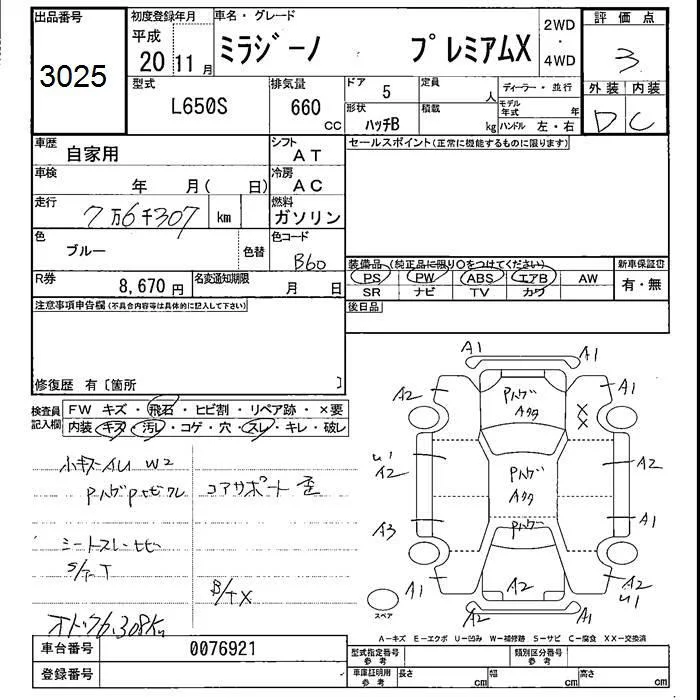 出品番号
3025
初度登録年月
平成
20 11月
車名・グレード
ミラジーノ プレミアムX
2WD
・
4WD
評価点
3
外装 内装
D C
型式
L650S
排気量
660
cc
ドア
5
定員
人
ディーラー・並行
形状
ハッチB
積載
kg
モデル年式 年
ハンドル 左・右
車歴
自家用
シフト
AT
車検
年 月( 日)
冷房
AC
走行
7万6千307 km
燃料
ガソリン
色
ブルー
色替
色コード
B60
R券
8,670円
名変通知期限
月 日
セールスポイント(正常に機能するものに限ります)
装備品 (純正品に限り○をつけてください)
新車保証書
PS PW ABS エアB AW
有・無
SR ナビ TV カワ
後日品
注意事項申告欄(不具合内容等は具体的に記入して下さい)
修復歴 有〔箇所 〕
検査員
記入欄
FW キズ・飛石・ヒビ割・リペア跡・×要
内装 キズ・汚レ・コゲ・穴・スレ・キレ・破レ
小キズ W2
コアサポート 歪
シートスレ
S/T
B/TX
A1 A1
A2 A1
Pハゲ
Aタタ
X
X
A2 A2
Pハゲ
Aタタ
A3 A1
Pハゲ
A2
A1 A2
A2 A1
スペア
A-キズ E-エクボ U-凹み W-補修跡 S-サビ C-腐食 XX-交換済
車台番号
0076921
登録番号
型式指定番号
参考
類別区分番号
参考
車庫証明用
参考
長さ cm 幅 cm 高さ cm